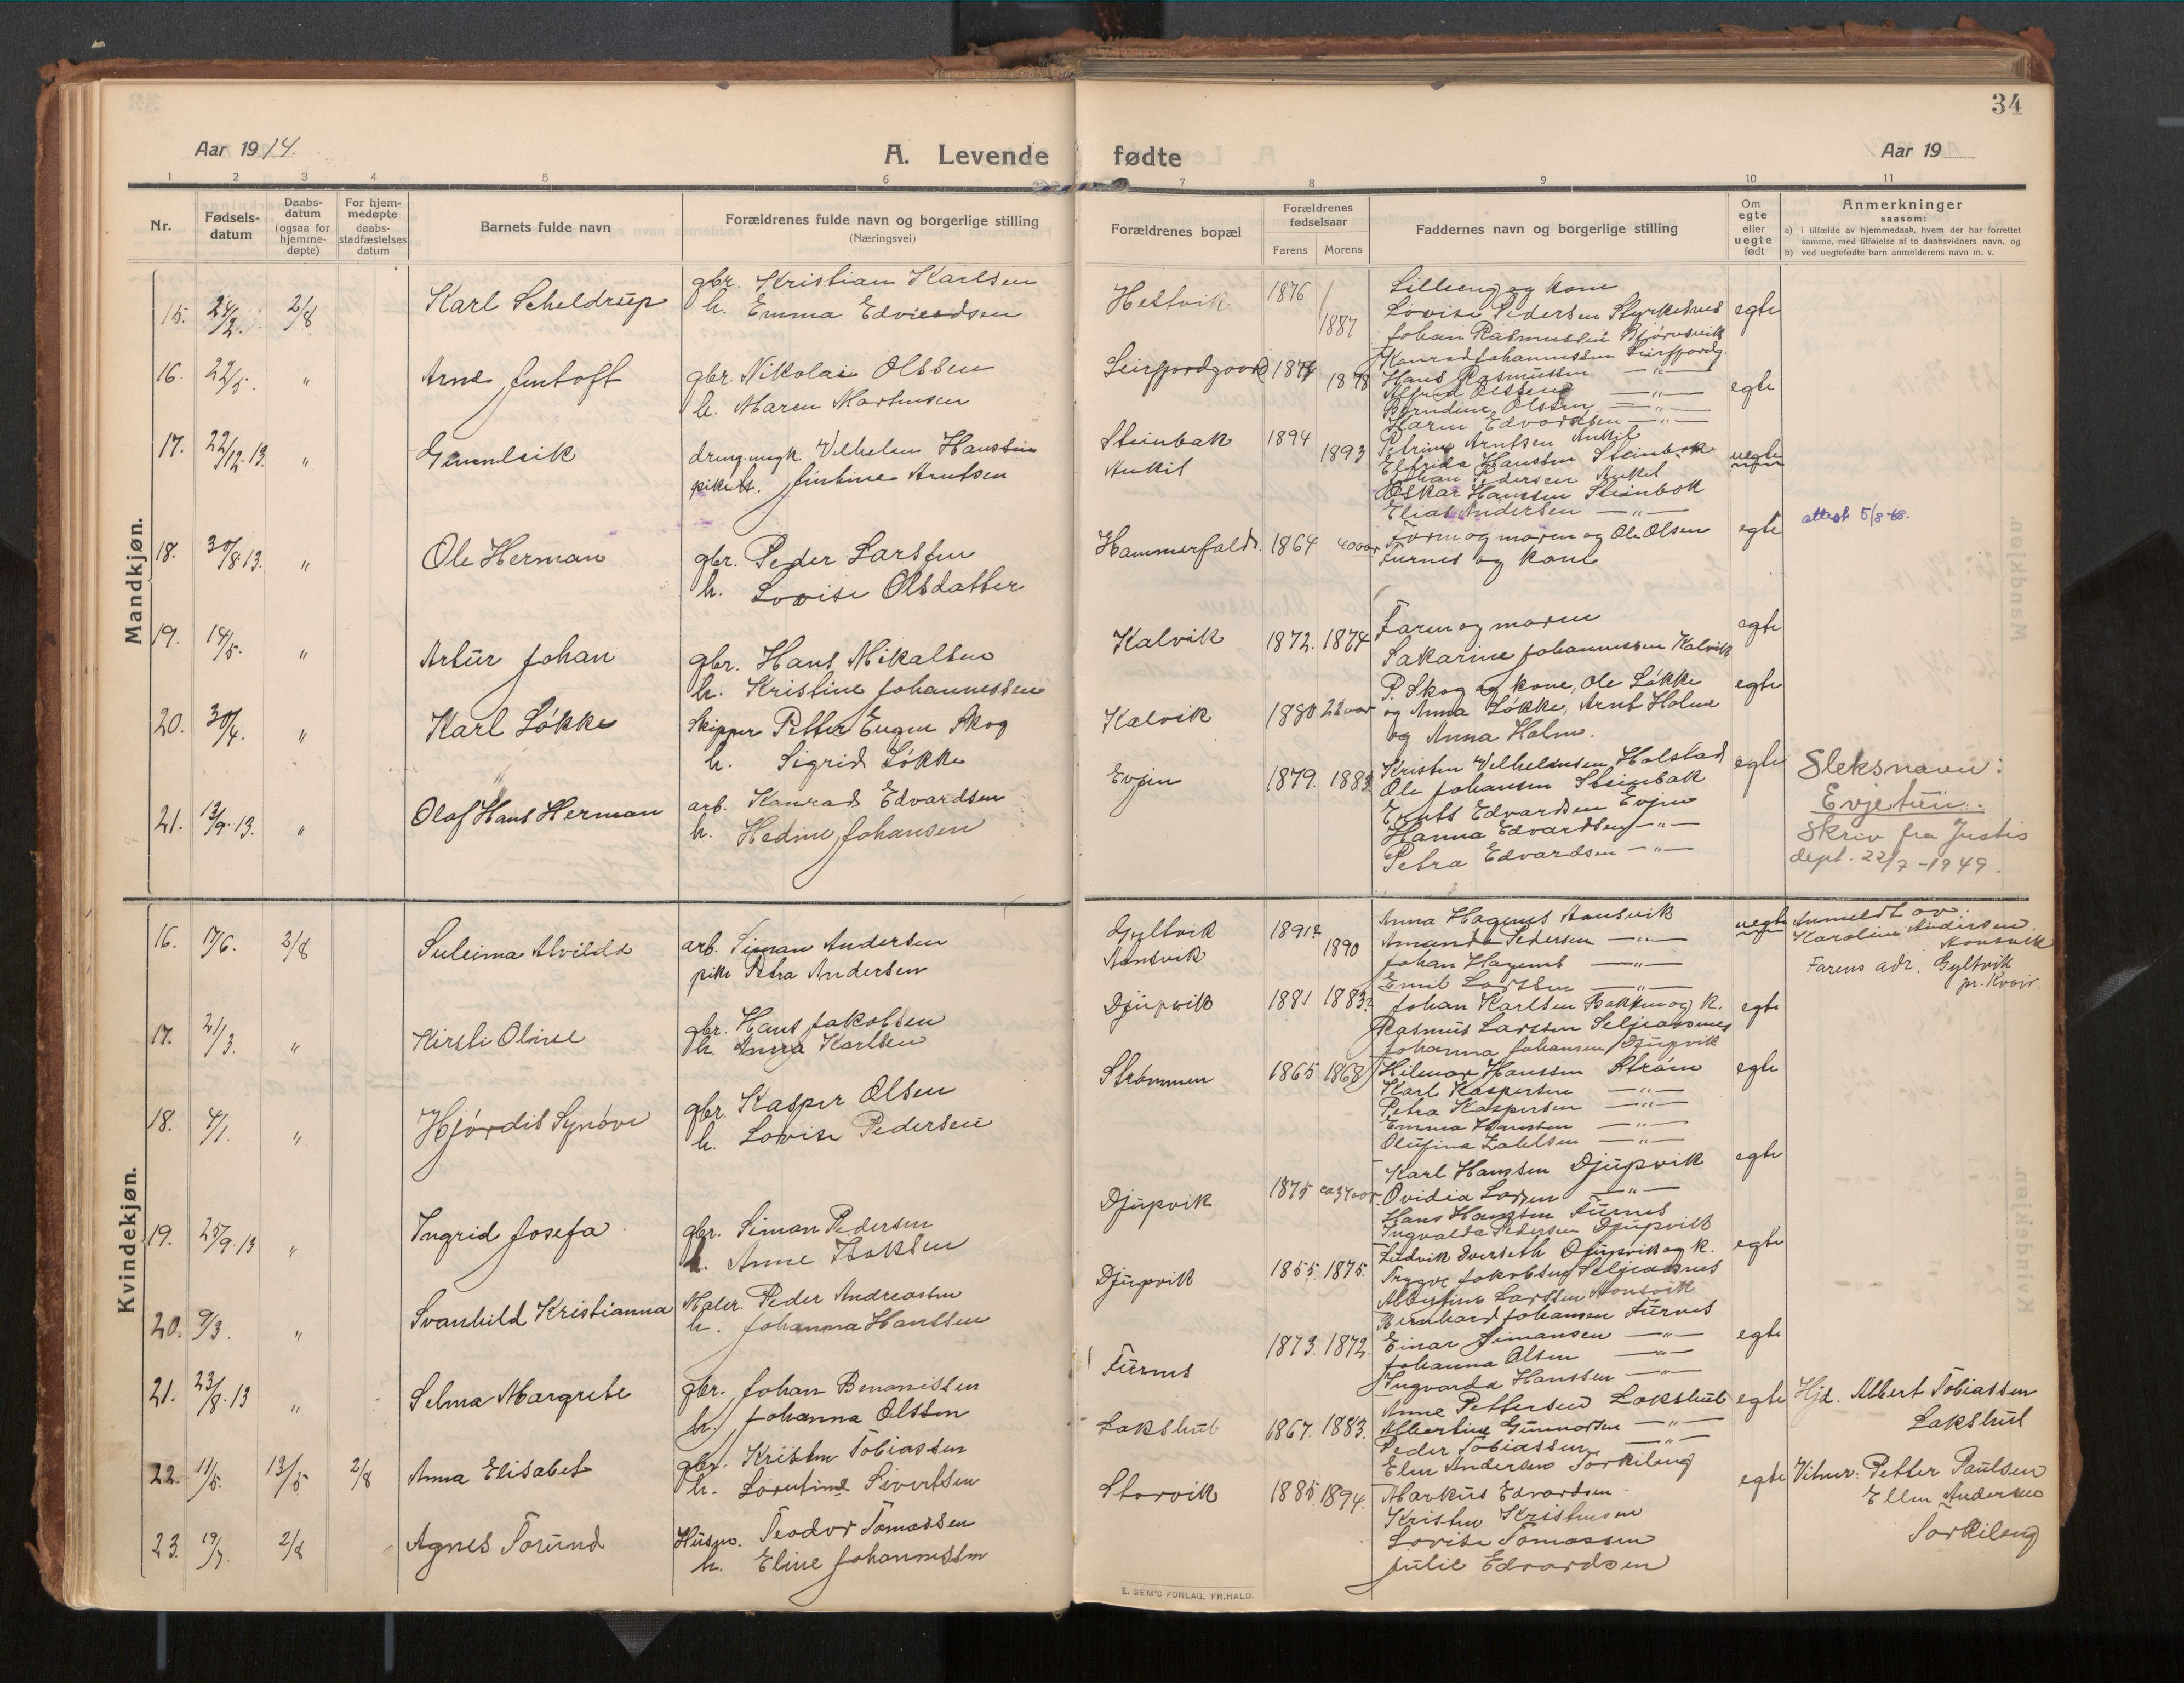 34
Aar 1914.
A. Levende fødte
Aar 19
1 2 3 4 5 6 7 8 9 10 11
Nr.
Fødsels-
datum
Daabs-
datum
(ogsaa for
hjemme-
døpte)
For hjem-
medøpte
daabs-
stadfæstelses
datum
Barnets fulde navn
Forældrenes fulde navn og borgerlige stilling
(Næringsvei)
Forældrenes bopæl
Forældrenes
fødselsaar
Farens Morens
Faddernes navn og borgerlige stilling
Om
egte
eller
uegte
født
Anmerkninger
saasom:
a) i tilfælde av hjemmedaab, hvem der har forrettet
samme, med tilføielse af to daabsvidners navn, og
b) ved uegtefødte barn anmelderens navn m. v.
Mandkjøn.
15. 24/2. 2/8 Karl Scheldrup
gbr. Kristian Karlsen
h. Emma
1876
1887
og kone
Lovise Pedersen
Johan Rasmussen
egte
16. 22/5. " Arne Jentoft
gbr. Nikolai Olssen
h. Maren Martinsen
1878
Hans Rasmussen —"—
Berndine Olssen —"—
Edvardsen —"—
egte
17. 22/12-13. "
Vilhelm Hanssen
Arntsen
1894
1893
Petrine Arntsen
Elfrida Hanssen
Johan Pedersen
Oskar Hanssen
Elias Andersen —"—
uegte
18. 30/8-13. " Ole Herman
gbr. Peder Larssen
h. Lovise Olsdatter
1864 40 aar
og moren og Ole Olsen
Furnes og kone
egte
attest 5/8-68.
19. 14/5. " Artur Johan
gbr. Hans Mikalsen
h. Kristine Johannessen
Kalvik 1872. 1874
Faren og moren
Sakarine Johannessen Kalvik
egte
20. 30/4. " Karl Løkke
Skipper Petter Eugen Skog
h. Sigrid Løkke
Kalvik 1880 22 aar
P. Skog og kone, Ole Løkke
og Anna Løkke, Arnt Holm
og Anna Holm.
egte
21. 13/9-13. " Olaf Hans Herman
arb. Konrad Edvardsen
h. Hedine Johansen
Evjen 1879. 1883
Ole Johansen
Edvardsen Evjen
Hanna Edvardsen —"—
Petra Edvardsen —"—
egte
Sleksnavn:
Evjetun.
Skriv fra Justis
dept. 22/7-1949.
Kvindekjøn.
16. 17/6. 2/8 Suleima Alvilda
arb. Simon Andersen
pike Petra Andersen
Gyltvik
Aansvik
1891?
1890
Anna Hagenes Aansvik
Amanda Pedersen —"—
Johan Hagenes —"—
Emil Larssen —"—
uegte
Anmeldt av:
Karoline Andersen
Aansvik
Farens adr. Gyltvik
17. 21/3. " Kirsti Oline
gbr. Hans Jakobsen
h. Anna Karlsen
Djupvik 1881 1883?
Johan Karlsen Bakken og k.
Rasmus Larssen
Johanna Johansen Djupvik
egte
18. 4/1. " Hjørdis Synøve
gbr. Kasper Olsen
h. Lovise Pedersen
Strømmen 1865 1868
Hilmar Hanssen Strøm
Karl Kaspersen —"—
Petra Kaspersen —"—
Emma Hanssen —"—
—"—
egte
19. 25/9-13 " Ingrid Josefa
gbr. Simon Pedersen
h. Anne Isaksen
Djupvik 1875 ca 37 aar
Karl Hanssen Djupvik
Ovidia —"—
Hans Hanssen Furnes
Ingvalda Pedersen Djupvik
egte
20. 9/3. " Svanhild Kristianna
Maler. Peder Andreassen
h. Johanna Hanssen
Djupvik 1855. 1875.
Ludvik Djupvik og k.
Trygve Jakobsen
Albertine Larssen Aansvik
egte
21. 23/8-13 " Selma Margrete
gbr. Johan Benonissen
h. Johanna Olssen
Furnes 1873. 1872.
Bernhard Johansen Furnes
Einar Simonsen —"—
Johanna Olsen —"—
Ingvarda Hanssen —"—
egte
22. 11/5. 13/5 2/8 Anna Elisabet
gbr. Kristen Tobiassen
h. Lorentine Sivertsen
Lakshul 1867. 1883.
Anne Pettersen Lakshul
Albertine Gunnarsen —"—
Peder Tobiassen —"—
Elen Andersen Torkileng
egte
Hjd. Albert Tobiassen
Lakshul
Vitner: Petter Paulsen
Ellen Andersen
Torkileng
23. 19/7. 2/8 Agnes Torund
Husm. Teodor Tomassen
h. Eline Johannessen
Storvik 1885. 1894.
Markus Edvardsen
Kristen Kristensen
Lovise Tomassen
Julie Edvardsen
egte
E. SEM'S FORLAG, FR.HALD.